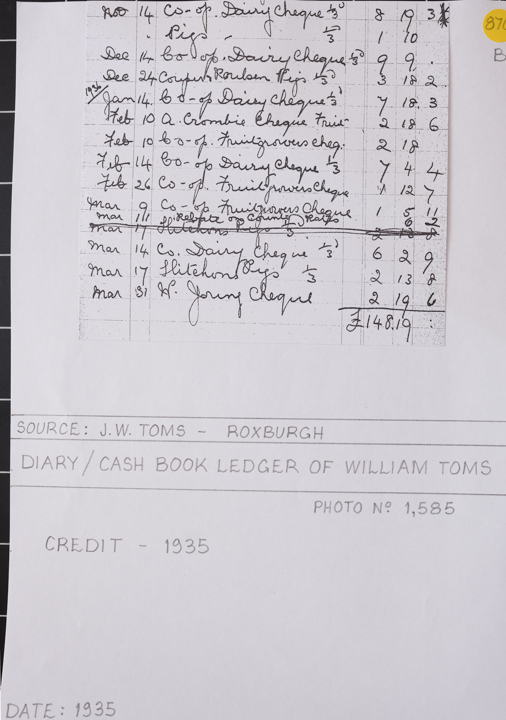 Nov 14 Co-op. Dairy Cheque 1/3 8 19 3
" Pigs - 1/3 1 10
Dec 14 Co-op. Dairy Cheque 1/3 9 9 .
Dec 24 Coupers Pigs 1/3 3 18 2
1935 Jan 14. Co-op Dairy Cheque 1/3 7 18. 3
Feb 10 A. Crombie Cheque Fruit 2 18 6
Feb 10 Co-op. Fruitgrowers cheq. 2 18
Feb 14 Co-op Dairy Cheque 1/3 7 4 4
Feb 26 Co-op. Fruitgrowers Cheque 12 7
Mar 9 Co-op Fruitgrowers Cheque 1 5 11
Mar 11 Rebate on County Rates 6 2
Mar 17 Hitchons Pigs 1/3 2 13 8
Mar 14 Co. Dairy Cheque 1/3 6 2 9
Mar 17 Hitchons Pigs 1/3 2 13 8
Mar 31 Cheque 2 19 6
£148.19 :
870
B
SOURCE: J.W. TOMS - ROXBURGH
DIARY/CASH BOOK LEDGER OF WILLIAM TOMS
PHOTO Nº 1,585
CREDIT - 1935
DATE: 1935